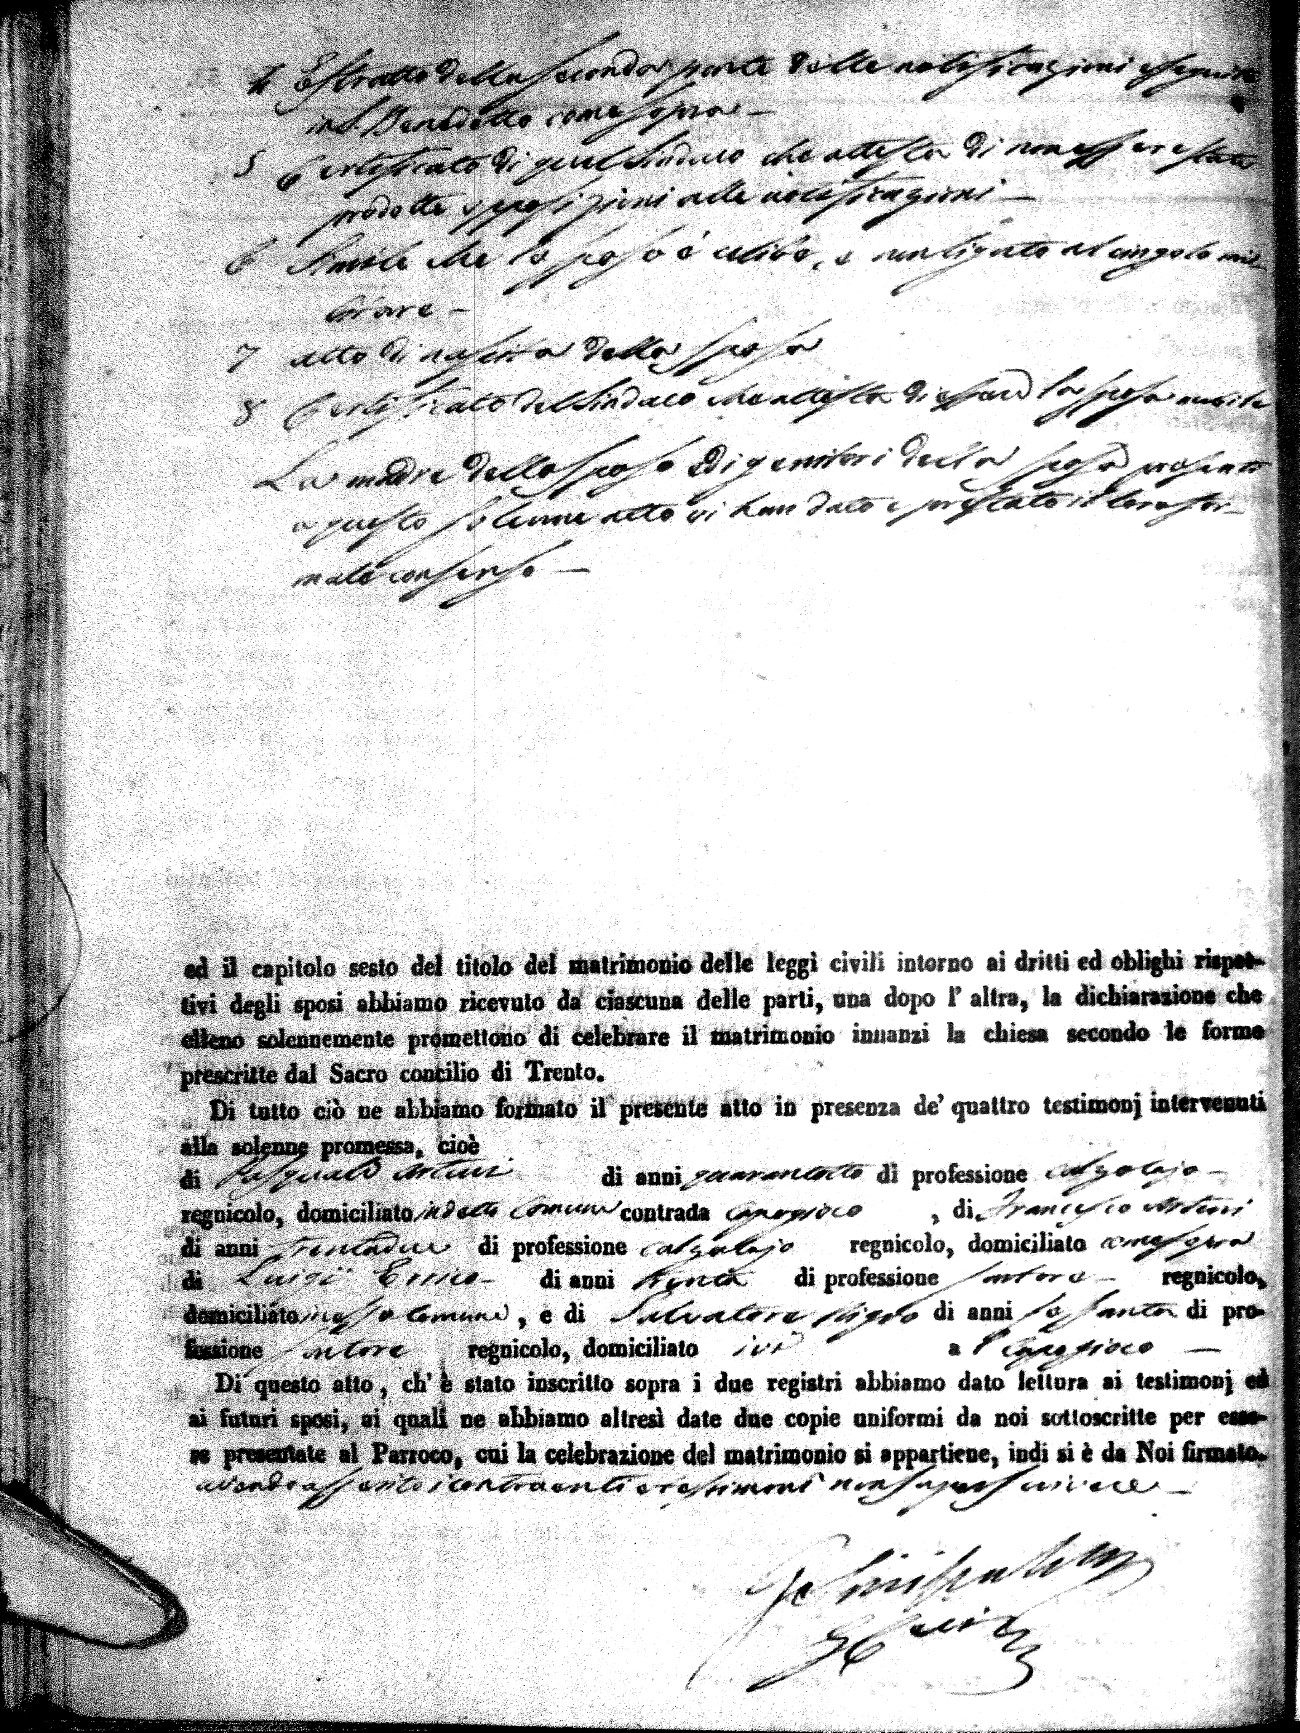 4 Estratto della seconda parte delle notificazioni eseguite
in S. Benedetto come sopra —
5 Certificato di quel Sindaco che attesta di non essere state
prodotte opposizioni alle notificazioni —
6 Simile che lo sposo è celibe, e non ligato al cingolo mi-
litare —
7 atto di nascita della sposa
8 Certificato del Sindaco che attesta di essere la sposa nubile
La madre dello sposo ed i genitori della sposa presenti
a questo solenne atto vi han dato e prestato il loro for-
male consenso —
ed il capitolo sesto del titolo del matrimonio delle leggi civili intorno ai dritti ed oblighi rispet-
tivi degli sposi abbiamo ricevuto da ciascuna delle parti, una dopo l' altra, la dichiarazione che
elleno solennemente promettono di celebrare il matrimonio innanzi la chiesa secondo le forme
prescritte dal Sacro concilio di Trento.
Di tutto ciò ne abbiamo formato il presente atto in presenza de' quattro testimonj intervenuti
alla solenne promessa, cioè
di Pasquale Arturi di anni quarantotto di professione calzolajo —
regnicolo, domiciliato in detto Comune contrada Capogioco , di Francesco Arturi
di anni trentadue di professione calzolajo regnicolo, domiciliato come sopra
di Luigi Errico di anni trenta di professione sartore — regnicolo,
domiciliato in esso Comune , e di Salvatore di anni sessanta di pro-
fessione sartore regnicolo, domiciliato ivi a Capogioco —
Di questo atto , ch' è stato inscritto sopra i due registri abbiamo dato lettura ai testimonj ed
ai futuri sposi, ai quali ne abbiamo altresì date due copie uniformi da noi sottoscritte per esse-
re presentate al Parroco, cui la celebrazione del matrimonio si appartiene, indi si è da Noi firmato.
avendo asserito i contraenti e testimoni non saper scrivere —